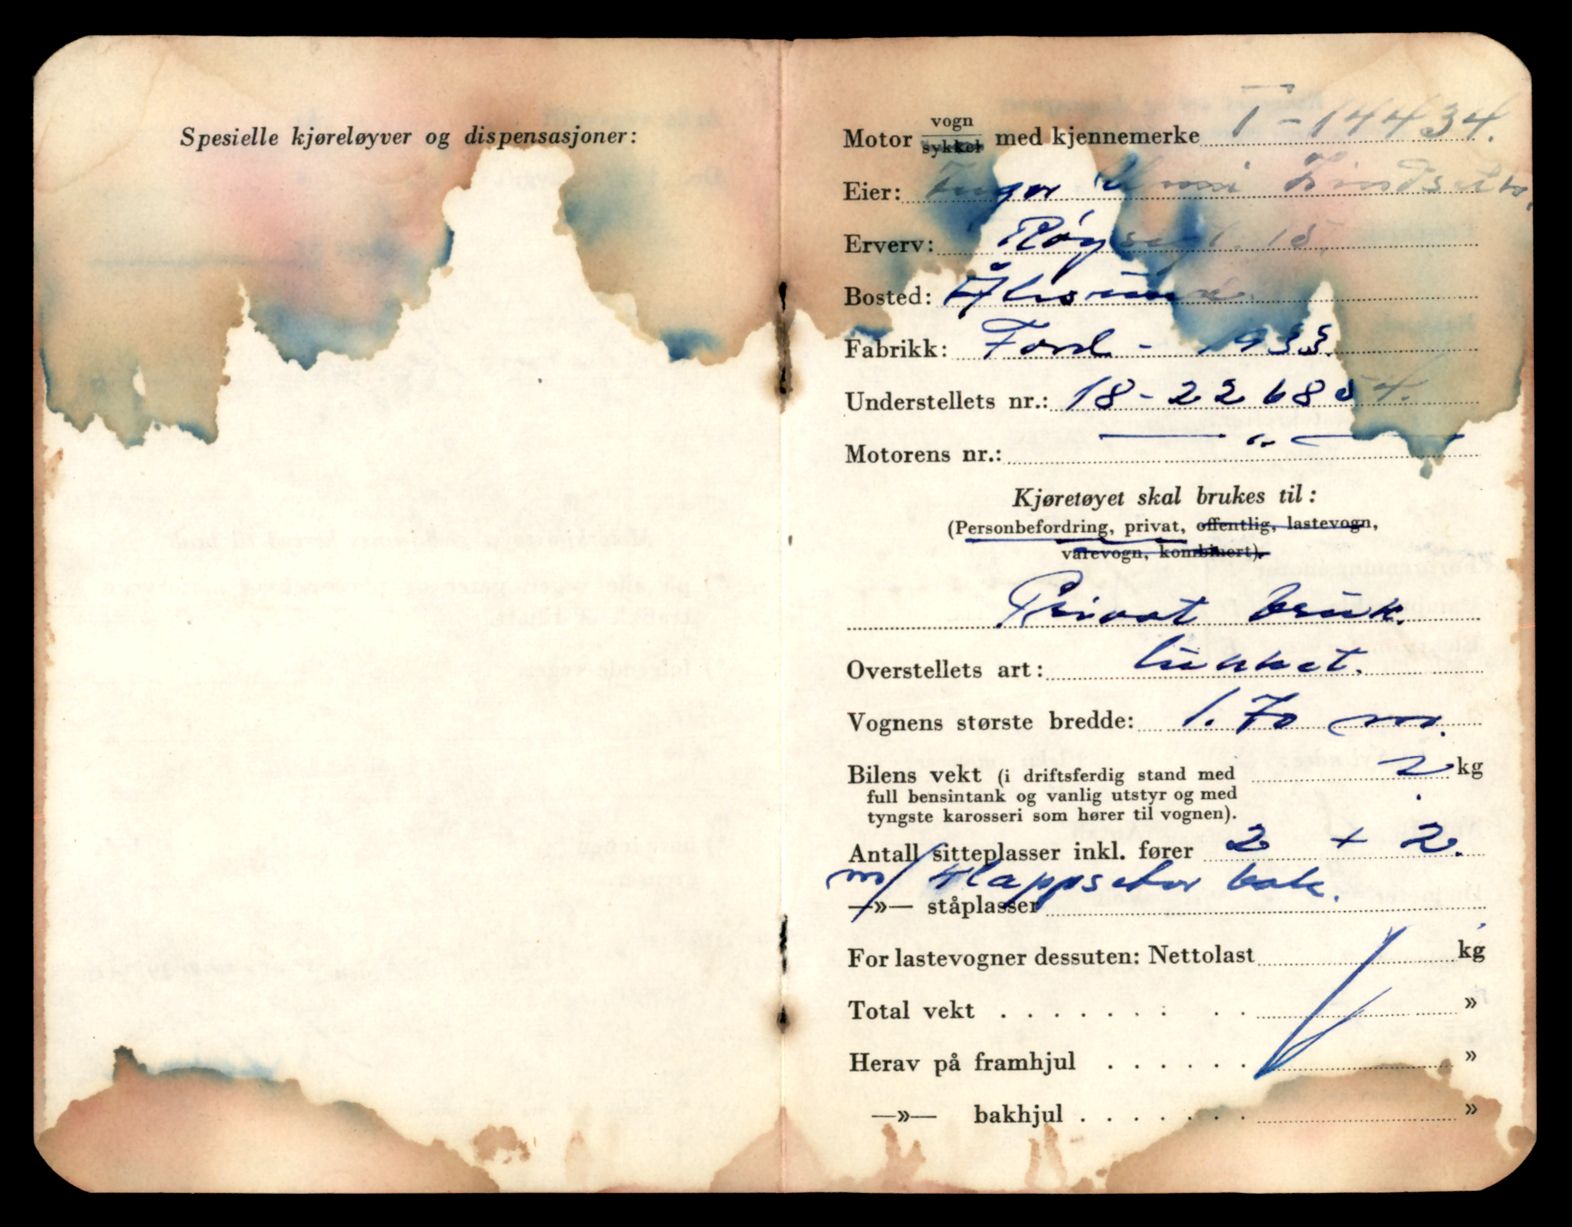 Spesielle kjøreløyver og dispensasjoner:
Motor vogn/sykkel med kjennemerke T-14434.
Eier: Inger Unni Lindseth.
Erverv: Røysegt. 15.
Bosted: Ålesund.
Fabrikk: Ford - 1933.
Understellets nr.: 18-2268054.
Motorens nr.: — " —
Kjøretøyet skal brukes til:
(Personbefordring, privat, offentlig, lastevogn,
varevogn, kombinert).
Privat bruk.
Overstellets art: lukket.
Vognens største bredde: 1.70 m.
Bilens vekt (i driftsferdig stand med ? kg
full bensintank og vanlig utstyr og med
tyngste karosseri som hører til vognen).
Antall sitteplasser inkl. fører 2 + 2.
m/ klappseter bak.
—»— ståplasser
For lastevogner dessuten: Nettolast kg
Total vekt . . . . . . . . . »
Herav på framhjul . . . . . . »
—»— bakhjul . . . . . . . »